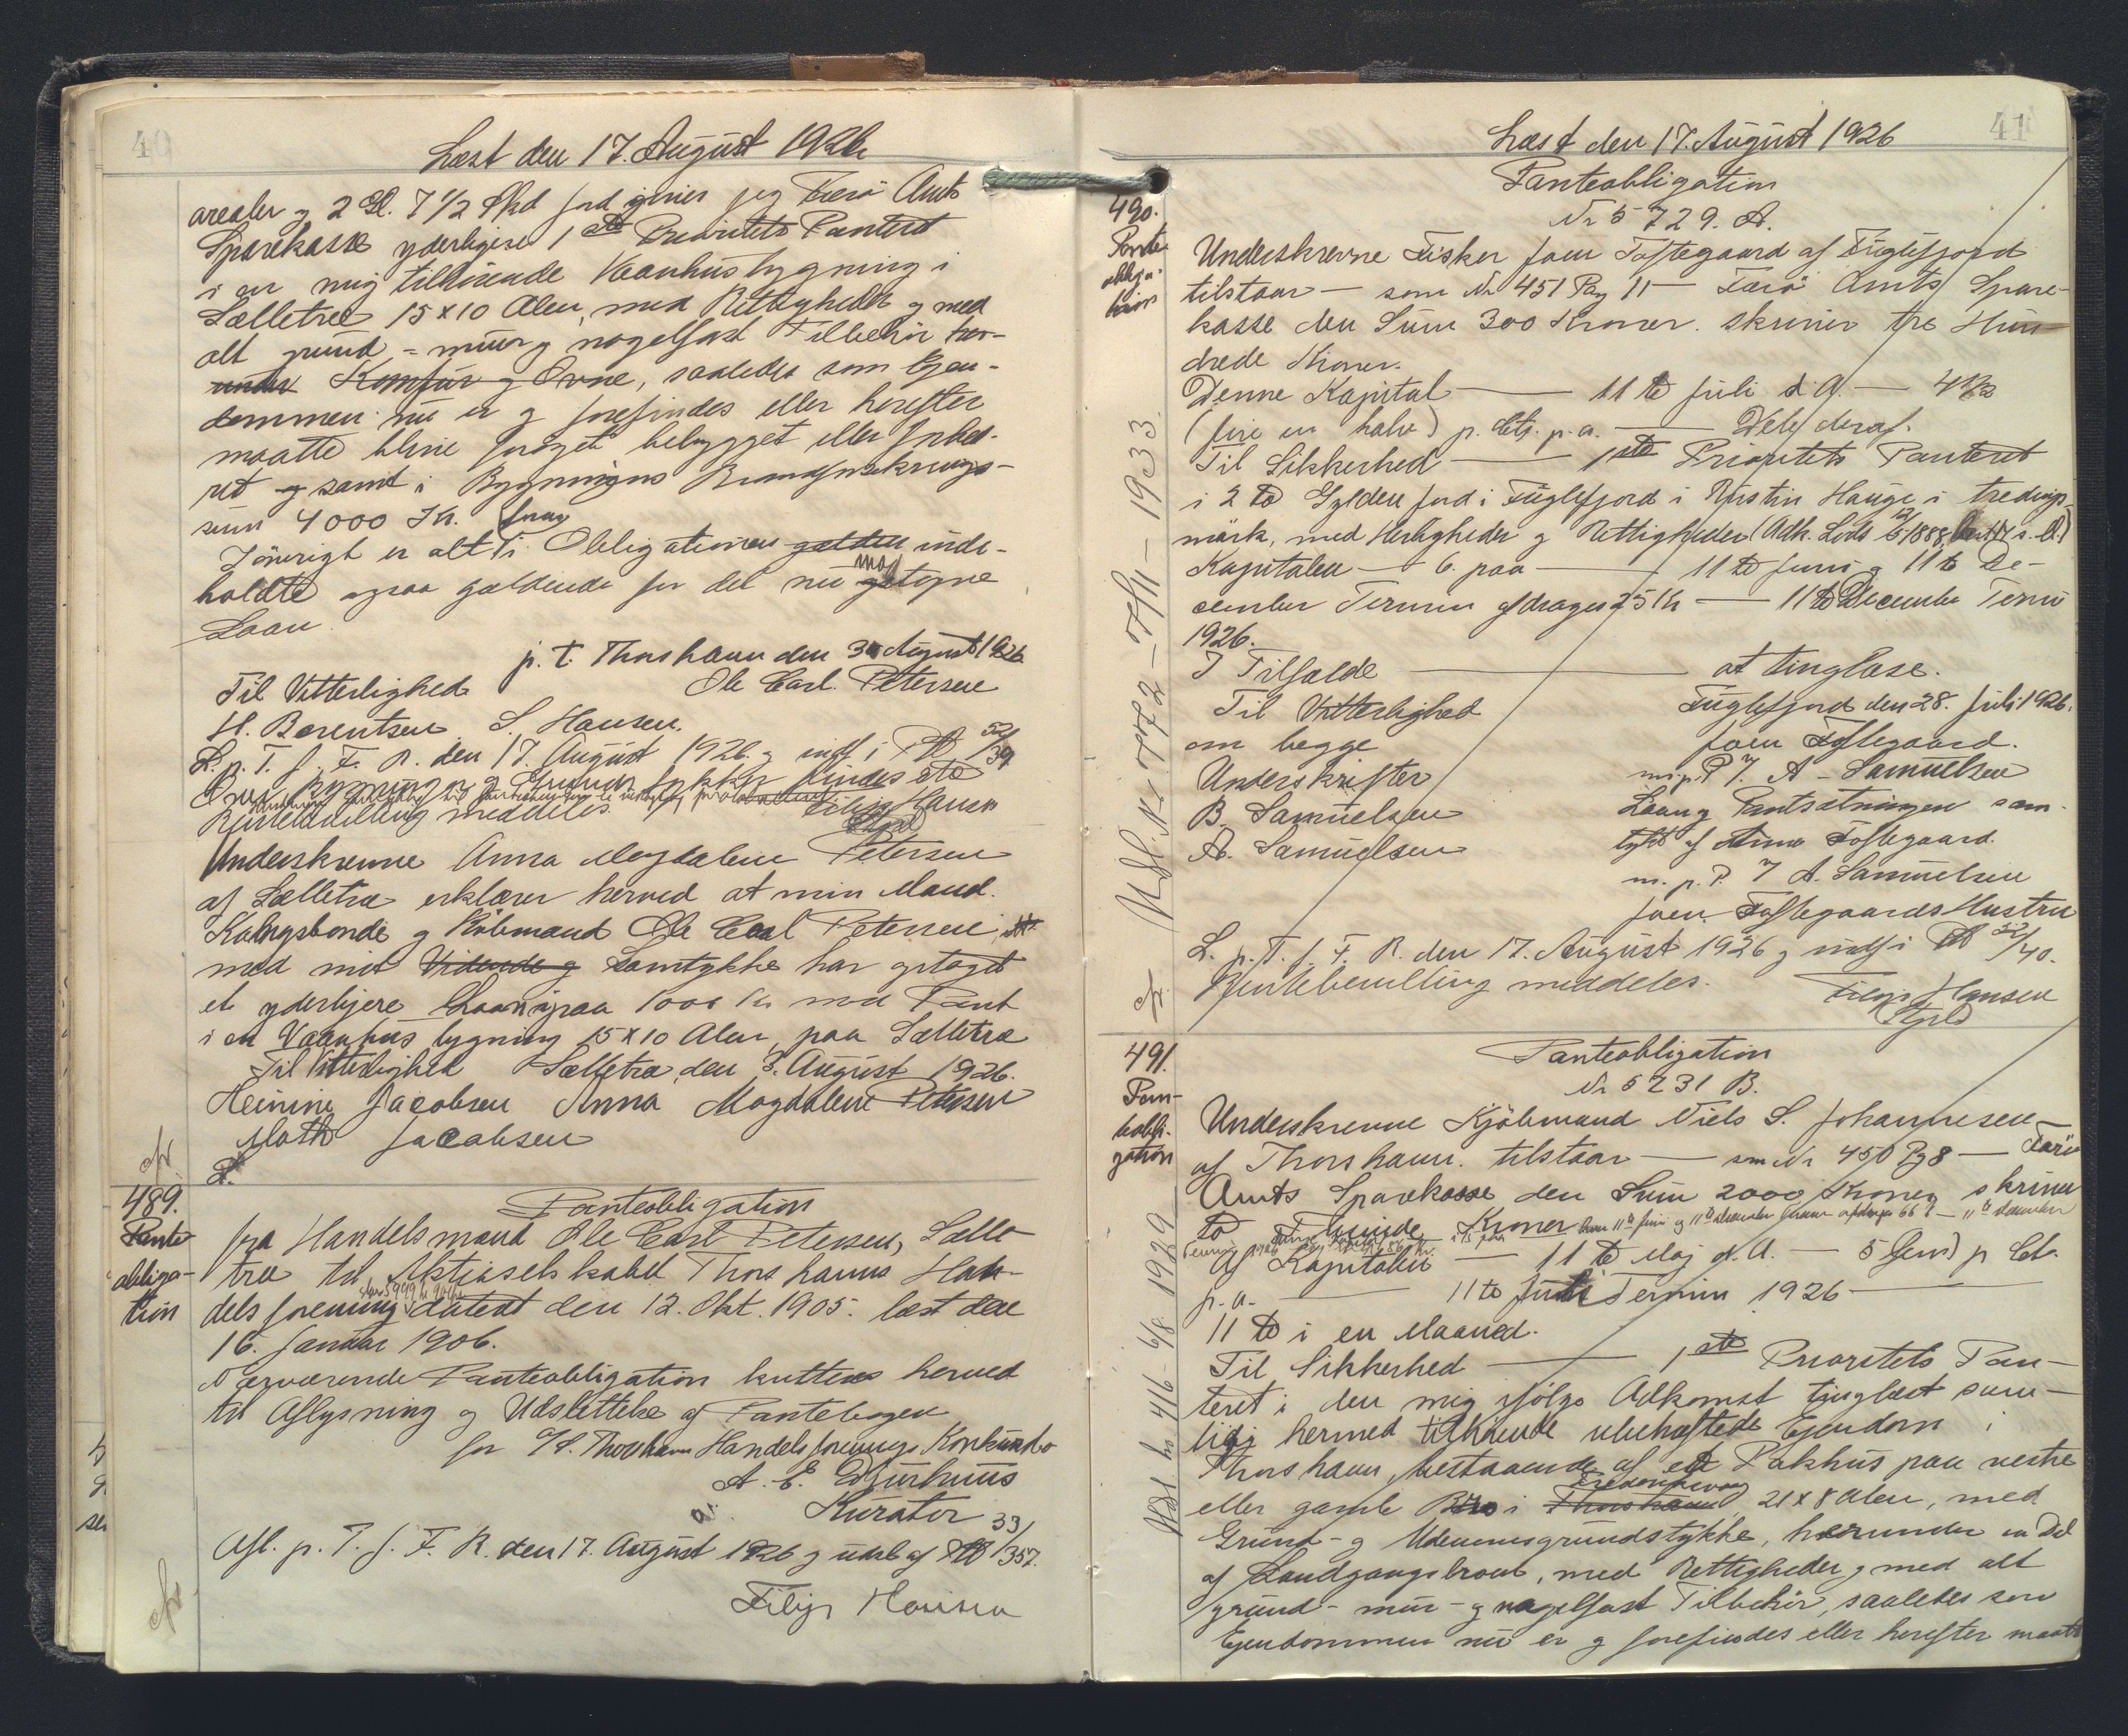 40
Læst den 17. August 1926
arealer og 2 Gl. 7 1/2 Skd Jord giver jeg Færö Amts
Sparekasse yderligere 1ste Prioritets Panteret
i en mig tilhörende Vaanhusbygning i
Sælletræ 15 x 10 Alen, med Rettigheder og med
alt grund - mur og nagelfast Tilbehör her-
under Komfur og Ovne, saaledes som Ejen-
dommen nu er og forefindes eller herefter
maatte blive foröget bebygget eller forbed-
ret og samt i Bygningens Brandforsikrings-
sum 4000 Kr.
Iövrigt er alt i Obligationen gælden inde-
holdte ogsaa gældende for det nu optagne
Laan.
p. t. Thorshavn den 3 August 1926
Til Vitterlighed Ole Carl. Petersen
H. Berentsen S. Hansen.
L. p. T. f. F. R. den 17. August 1926 og indf i PB 52/39
Om Bygningen og Grunden findes ate
Rentebevilling meddeles. Filip Hansen
Underskrevne Anna Magdalene Petersen
af Sælletræ erklærer herved at min Mand.
Kongsbonde og Köbmand Ole Carl Petersen,
med mit Vidende og Samtykke har optaget
et yderligere Laan paa 1000 Kr mod Pant
i en Vaanhus bygning 15 x 10 Alen, paa Sælletræ
Til Vitterlighed Sælletræ, den 3. August 1926.
Heinine Jacobsen Anna Magdalene Petersen
Math Jacobsen
489.
Pante
obliga-
tion
Panteobligation
fra Handelsmand Ole Carl Petersen, Sælle
træ til Aktieselskabet Thorshavns Han-
dels forening dateret den 12. Okt. 1905. læst den
16. Januar 1906.
Nærværende Panteobligation kvitteres herved
til Aflysning og Udslettelse af Pantebogen
for A/S. Thorshavn Handelsforenings Konkursbo
A. E. Djurhuus
Kurator
Afl. p. T. f. F. R. den 17. August 1926 og udsl af PB 33/357.
Filip Hansen
41
Læst den 17. August 1926
490.
Pante
obliga-
tion
Panteobligation
Nr 5729. A.
Underskrevne Fisker Joen Toftegaard af Fuglefjord
tilstaar — som Nr 451 Pag 11 — Færö Amts Spare-
kasse den Sum 300 Kroner. skriver tre Hun-
drede Kroner.
Denne Kapital — 11te Juli d. A. — 4 1/2
(fire en halv) p. Cts. p. a. — Dele deraf.
Til Sikkerhed — 1ste Prioritets Panteret
i 2 to Gylden Jord i Fuglefjord i Ristin Hauge i tredings-
mark, med Herligheder og Rettigheder
Kapitalen — 6. paa — 11te Juni og 11te De-
cember Termin afdrages 25 Kr — 11te December Termin
1926.
I Tilfælde — at tinglæse.
Til Vitterlighed Fuglefjord den 28. Juli 1926.
om begge Joen Toftegaard.
Underskrifter m. p. P. J. A - Samuelsen
B. Samuelsen Laan og Pantsætningen sam-
A. Samuelsen tykt af Anna Toftegaard.
m. p. P. J A. Samuelsen
Joen Toftegaards Hustru
L. p. T. f. F. R. den 17. August 1926 og indf i PB 52/40.
Rentebevilling meddeles.
Filip Hansen
491.
Pan-
teobli-
gation
Panteobligation
Nr 5231 B.
Underskrevne Kjöbmand Niels S. Johannesen
af Thorshavn. tilstaar — som Nr 450 Pg 8 — Færö
Amts Sparekasse den Sum 2000 Kroner, skriver
to Tusinde Kroner
Af Kapitalen — 11te Maj d. A. — 5 (fem) p Ct.
p. a. — 11te Juni Termin 1926 —
11te i en Maaned.
Til Sikkerhed — 1ste Prioritets Pan-
teret i den mig ifölge Adkomst tinglæst sam-
tidig hermed tilhörende ubehæftede Ejendom i
Thorshavn, bestaaende af et Pakhus paa vestre
eller gamle Bro i Thorshavn, 21 x 8 Alen, med
Grund - og Udenomsgrundstykke, herunder en Del
af Landgangsbroen, med Rettigheder og med alt
grund - mur - og nagelfast Tilbehör, saaledes som
Ejendommen nu er og forefindes eller herefter maatte